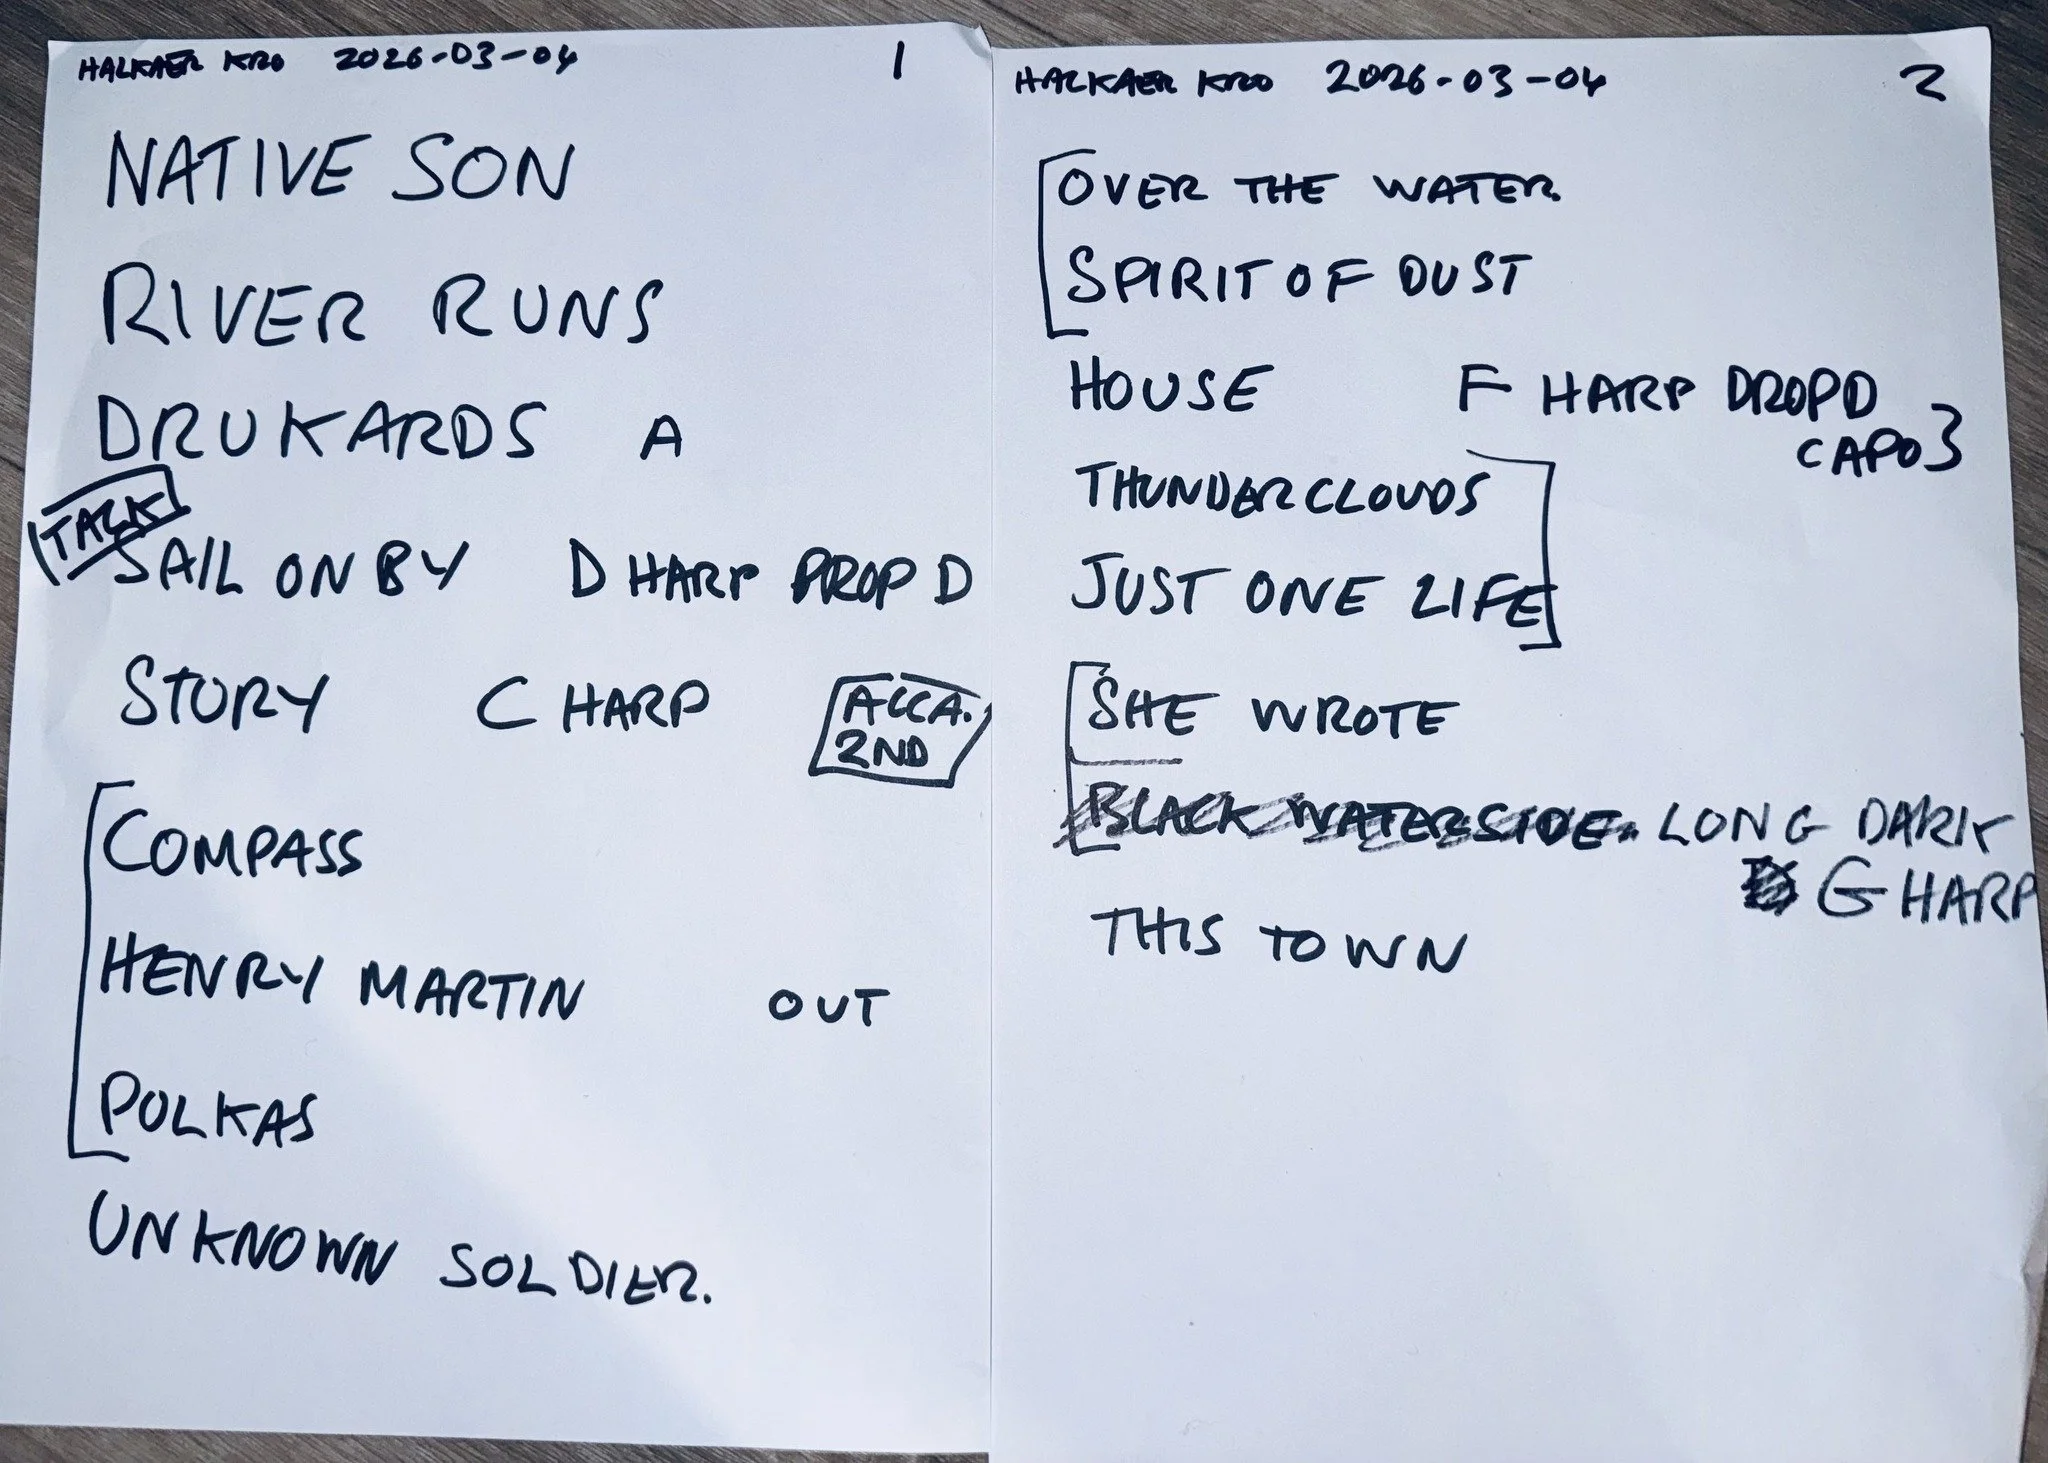 HALKAER KRO 2026-03-04 1
NATIVE SON
RIVER RUNS
DRUKARDS A
TALK
SAIL ON BY D HARP DROP D
STORY C HARP ACCA. 2ND
COMPASS
HENRY MARTIN OUT
POLKAS
UNKNOWN SOLDIER.
HALKAER KRO 2026-03-04 2
OVER THE WATER
SPIRIT OF DUST
HOUSE F HARP DROP D
CAPO 3
THUNDERCLOUDS
JUST ONE LIFE
SHE WROTE
BLACK WATERSIDE. LONG DARK
G HARP
THIS TOWN